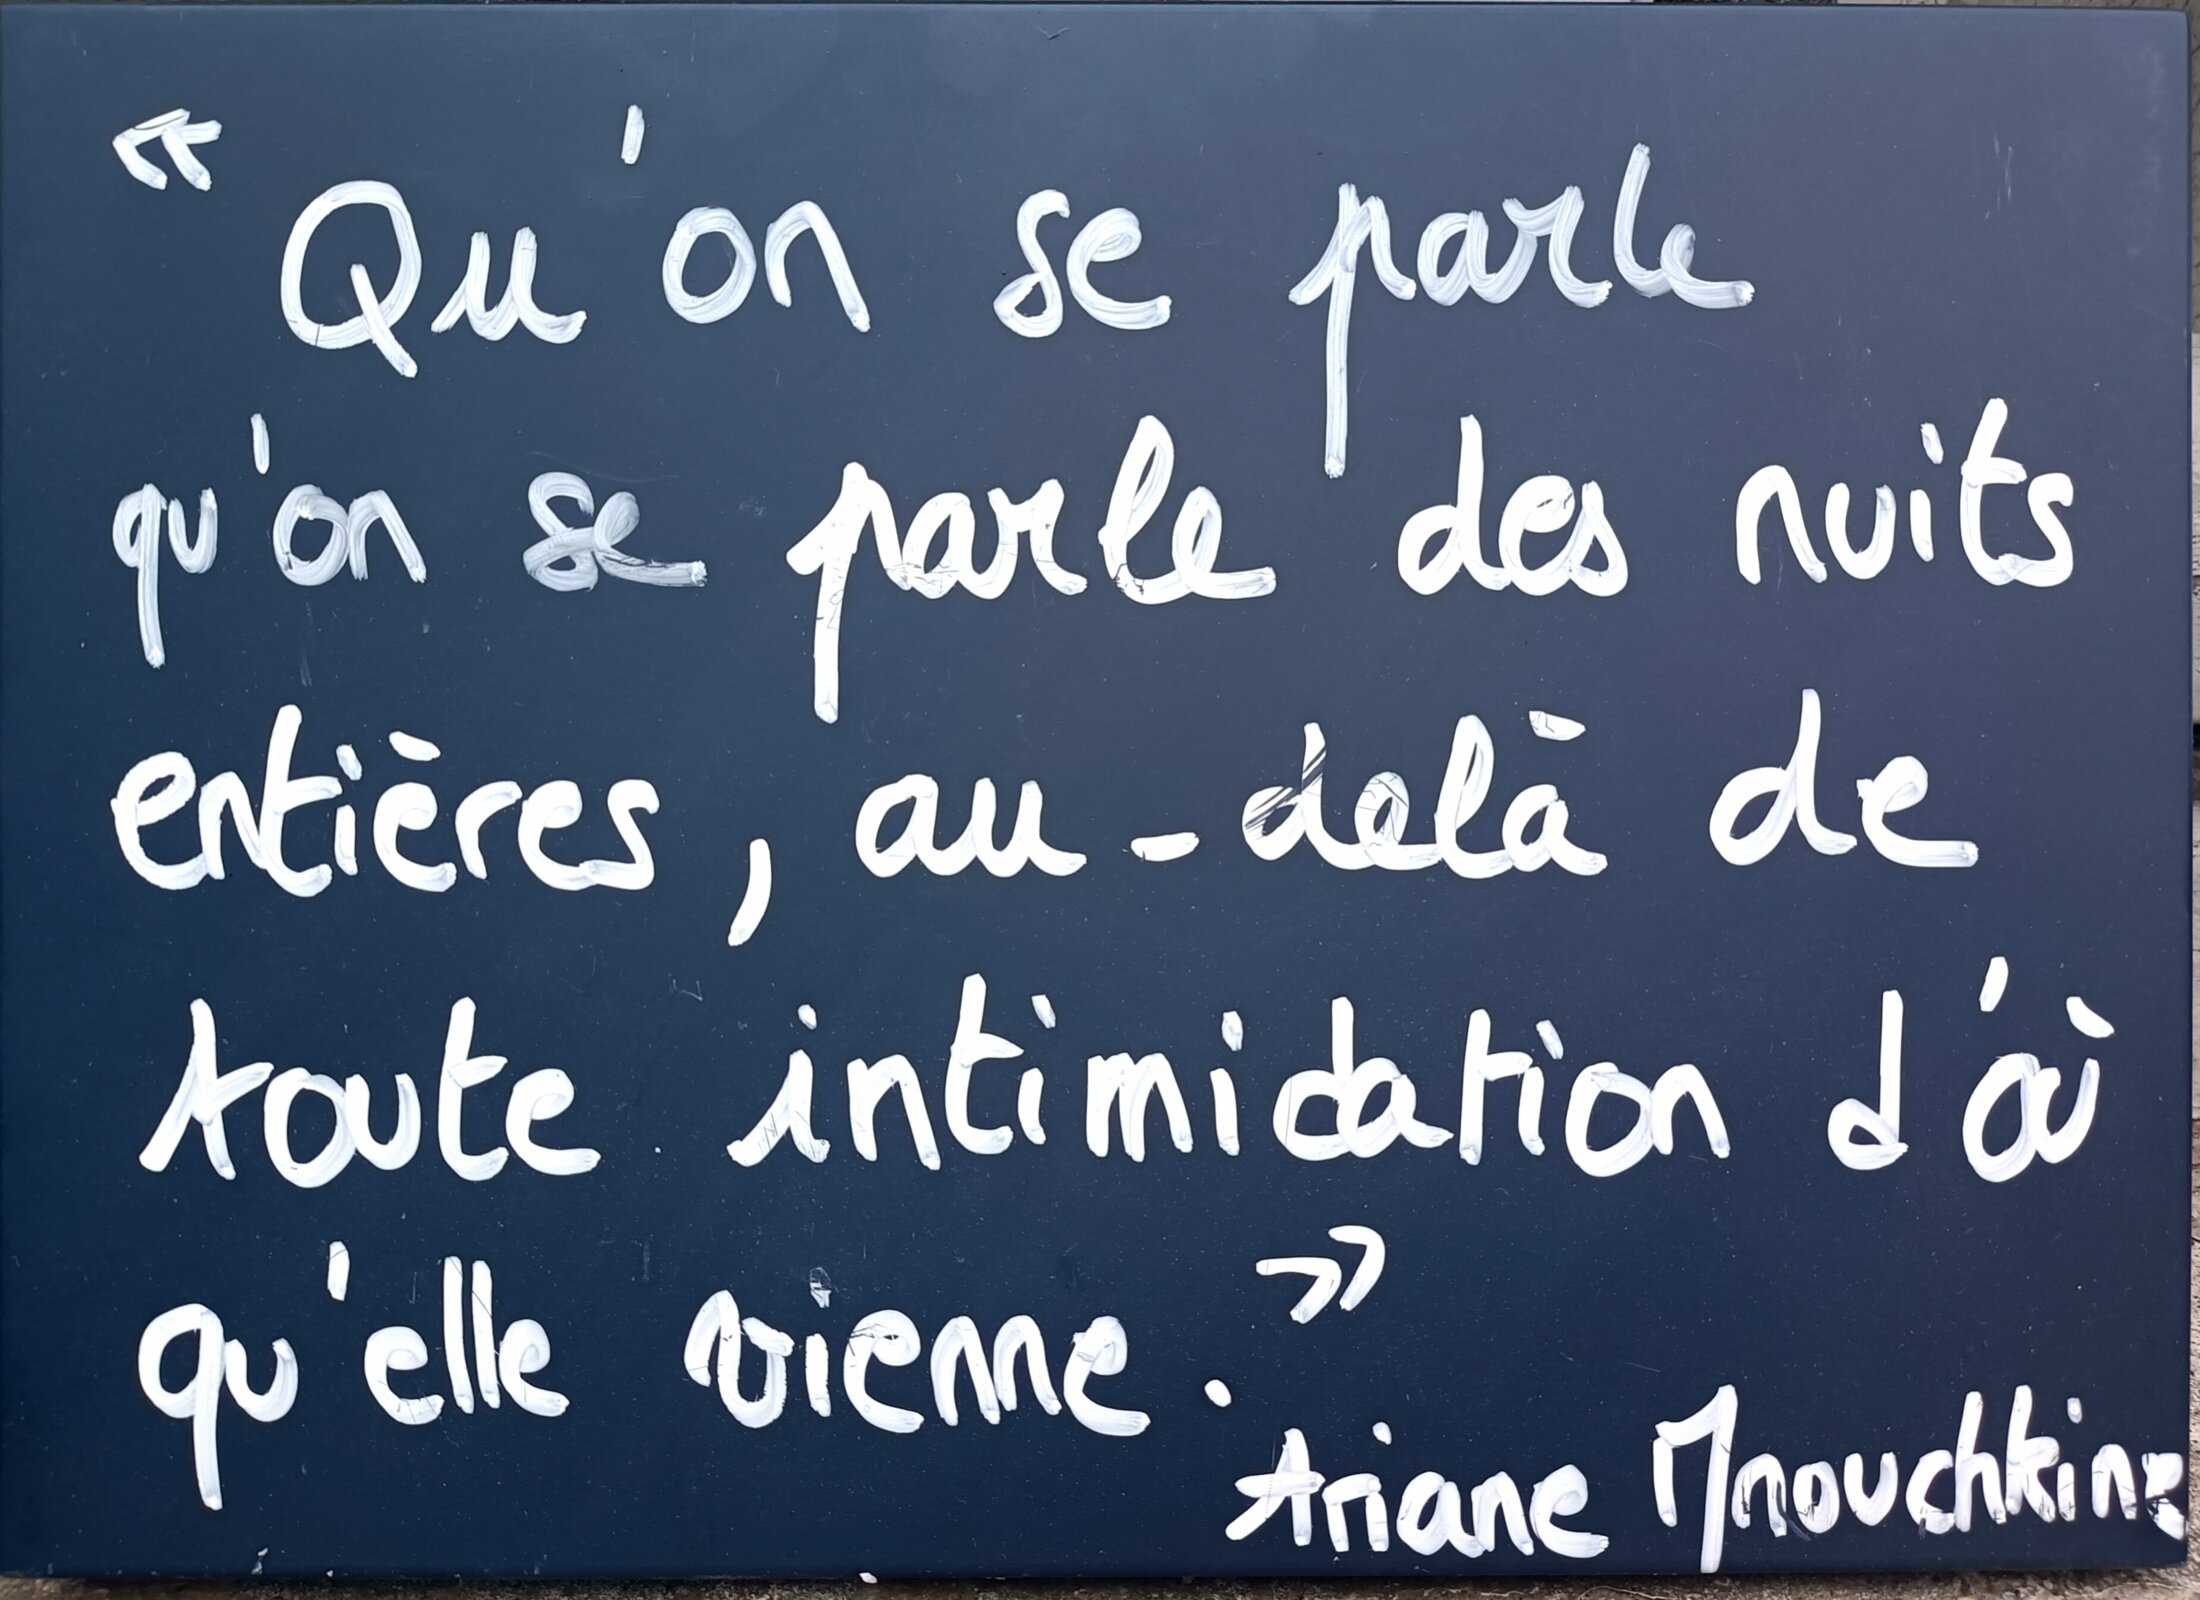 « Qu'on se parle
qu'on se parle des nuits
entières, au-delà de
toute intimidation d'où
qu'elle vienne. »
Ariane Mnouchkine